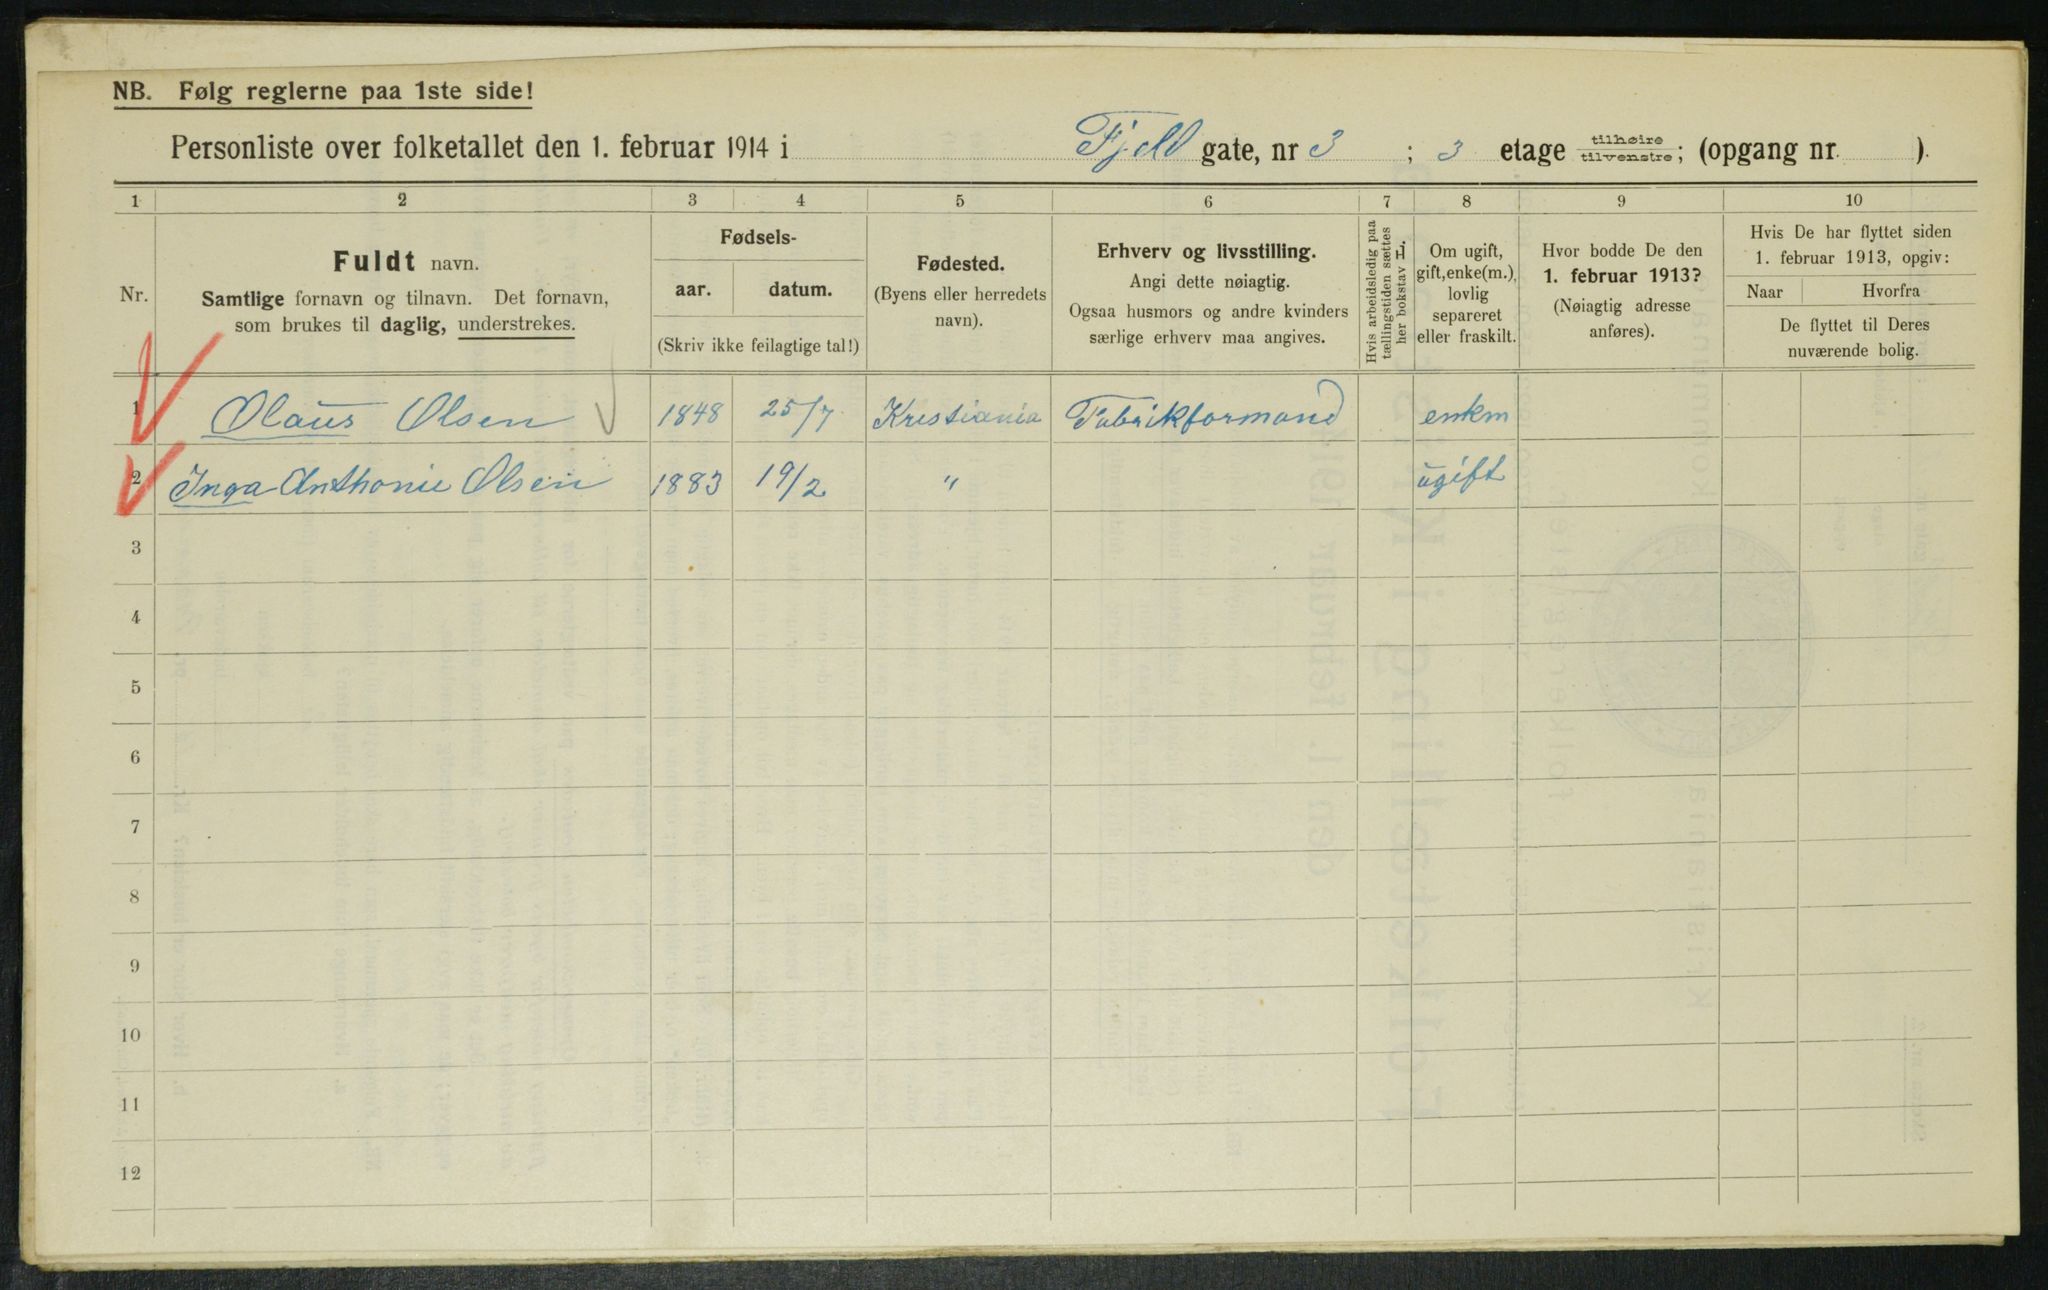 NB. Følg reglerne paa 1ste side!
Personliste over folketallet den 1. februar 1914 i Fjeld gate, nr 3 ; 3 etage tilhøire tilvenstre; (opgang nr. ).
1 2 3 4 5 6 7 8 9 10
Nr.
Fuldt navn.
Samtlige fornavn og tilnavn. Det fornavn,
som brukes til daglig, understrekes.
Fødsels-
aar. datum.
(Skriv ikke feilagtige tal!)
Fødested.
(Byens eller herredets
navn).
Erhverv og livsstilling.
Angi dette nøiagtig.
Ogsaa husmors og andre kvinders
særlige erhverv maa angives.
Hvis arbeidsledig paa
tællingstiden sættes
her bokstav L.
Om ugift,
gift, enke(m.),
lovlig
separeret
eller fraskilt.
Hvor bodde De den
1. februar 1913?
(Nøiagtig adresse
anføres).
Hvis De har flyttet siden
1. februar 1913, opgiv:
Naar Hvorfra
De flyttet til Deres
nuværende bolig.
1 Olaus Olsen 1848 25/7 Kristiania Fabrikformand enkm
2 Inga Anthonie Olsen 1883 19/2 " ugift
3
4
5
6
7
8
9
10
11
12